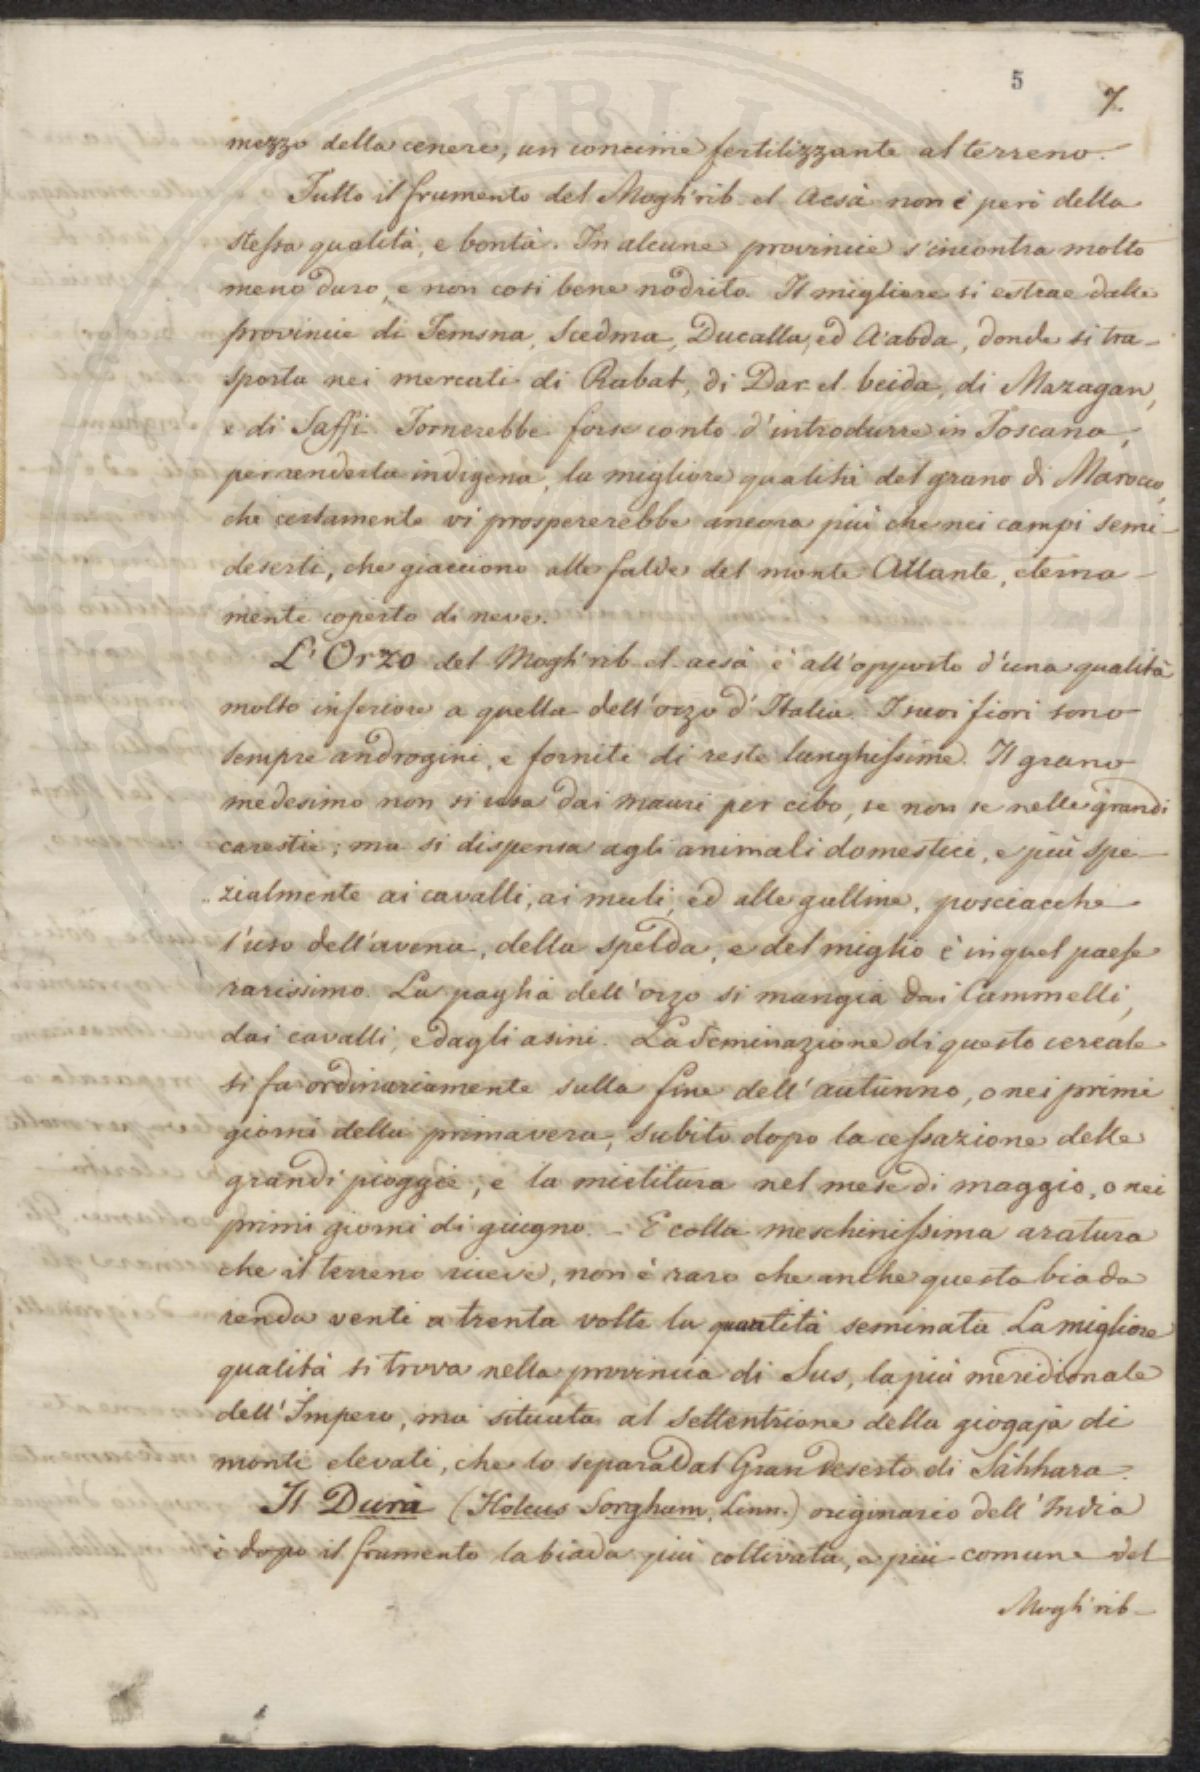 5
7.
mezzo della cenere, un concime fertilizzante al terreno.
Tutto il frumento del Mogh'rib el Acsà non è però della
stessa qualità, e bontà. In alcune provincie s'incontra molto
meno duro, e non così bene nodrito. Il migliore si estrae dalle
provincie di Temsna, Scedma, Ducalla, ed A'abda, donde si tra-
sporta nei mercati di Rabat, di Dar el beida, di Mazagan,
e di Saffi. Tornerebbe forse conto d'introdurre in Toscana,
per renderla indigena, la migliore qualità del grano di Marocco,
che certamente vi prospererebbe ancora più che nei campi semi-
deserti, che giacciono alle falde del monte Atlante, eterna-
mente coperto di neve.
L'Orzo del Mogh'rib el acsà è all'opposto d'una qualità
molto inferiore a quella dell'orzo d'Italia. I suoi fiori sono
sempre androgini, e forniti di reste lunghissime. Il grano
medesimo non si usa dai mauri per cibo, se non se nelle grandi
carestie; ma si dispensa agli animali domestici, e più spe-
zialmente ai cavalli, ai muli, ed alle galline, posciacchè
l'uso dell'avena, della spelda, e del miglio è in quel paese
rarissimo. La paglia dell'orzo si mangia dai Cammelli,
dai cavalli, e dagli asini. La seminazione di questo cereale
si fa ordinariamente sulla fine dell'autunno, o nei primi
giorni della primavera, subito dopo la cessazione delle
grandi pioggie; e la mietitura nel mese di maggio, o nei
primi giorni di giugno. - E colla meschinissima aratura
che il terreno riceve, non è raro che anche questa biada
renda venti a trenta volte la quantità seminata. La migliore
qualità si trova nella provincia di Sus, la più meridionale
dell'Impero, ma situata al settentrione della giogaja di
monti elevati, che lo separa dal Gran deserto di Sàhhara.
Il Durà (Holcus Sorghum, Linn.) originario dell'India
è dopo il frumento la biada più coltivata, e più comune del
Mogh'rib-